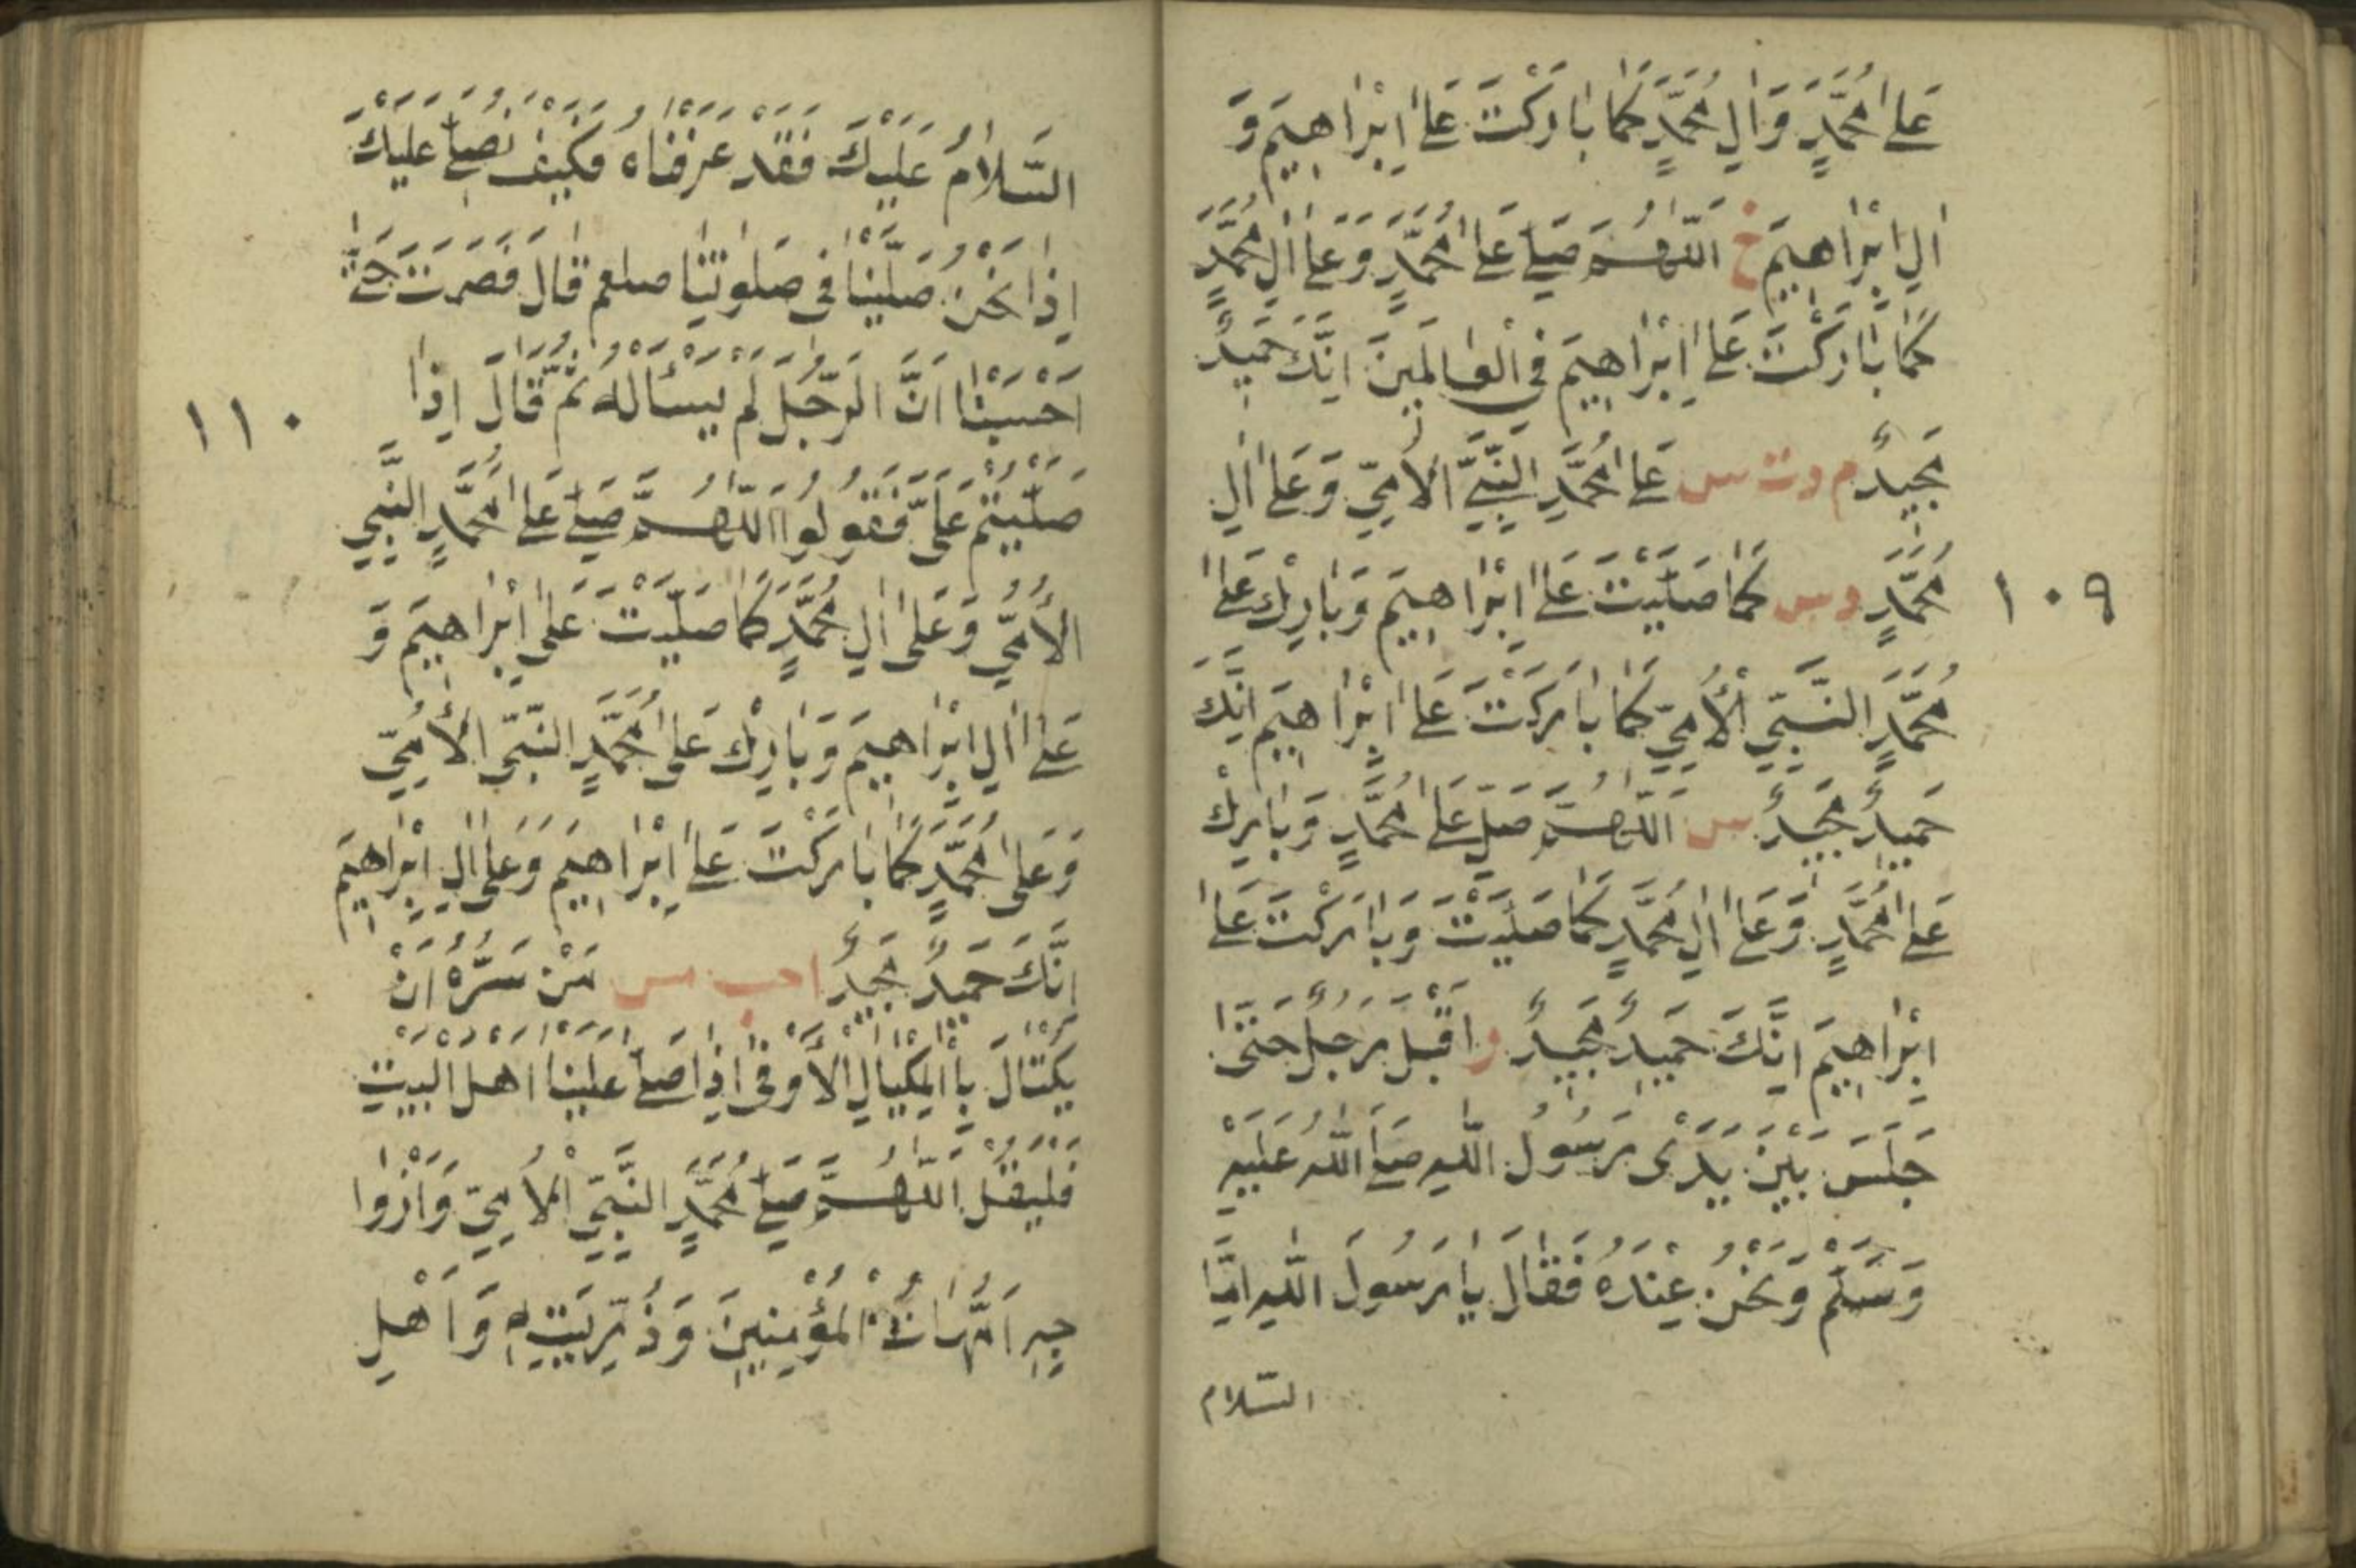 عَلىٰ مُحَمَّدٍ وَاٰلِ مُحَمَّدٍ كَمَا بَارَكْتَ عَلىٰ اِبْرَاهِيمَ وَ
اٰلِ اِبْرَاهِيمَ خ اَللّٰهُمَّ صَلِّ عَلىٰ مُحَمَّدٍ وَعَلىٰ اٰلِ مُحَمَّدٍ
كَمَا بَارَكْتَ عَلىٰ اِبْرَاهِيمَ فِي الْعَالَمِينَ اِنَّكَ حَمِيدٌ
مَجِيدٌ م د ت س عَلىٰ مُحَمَّدٍ النَّبِيِّ الْاُمِّيِّ وَعَلىٰ اٰلِ
١٠٩
مُحَمَّدٍ د س كَمَا صَلَّيْتَ عَلىٰ اِبْرَاهِيمَ وَبَارِكْ عَلىٰ
مُحَمَّدٍ النَّبِيِّ الْاُمِّيِّ كَمَا بَارَكْتَ عَلىٰ اِبْرَاهِيمَ اِنَّكَ
حَمِيدٌ مَجِيدٌ س اَللّٰهُمَّ صَلِّ عَلىٰ مُحَمَّدٍ وَبَارِكْ
عَلىٰ مُحَمَّدٍ وَعَلىٰ اٰلِ مُحَمَّدٍ كَمَا صَلَّيْتَ وَبَارَكْتَ عَلىٰ
اِبْرَاهِيمَ اِنَّكَ حَمِيدٌ مَجِيدٌ ر اَقْبَلَ رَجُلٌ حَتّٰى
جَلَسَ بَيْنَ يَدَىْ رَسُولِ اللّٰهِ صَلَّى اللّٰهُ عَلَيْهِ
وَسَلَّمَ وَنَحْنُ عِنْدَهُ فَقَالَ يَا رَسُولَ اللّٰهِ اَمَّا
السّلام
السَّلَامُ عَلَيْكَ فَقَدْ عَرَفْنَاهُ فَكَيْفَ نُصَلِّي عَلَيْكَ
اِذَا نَحْنُ صَلَّيْنَا فِي صَلٰوتِنَا صلعم قَالَ فَصَمَتَ حَتّٰى
اَحْبَبْنَا اَنَّ الرَّجُلَ لَمْ يَسْأَلْهُ ثُمَّ قَالَ اِذَا
١١٠
صَلَّيْتُمْ عَلَيَّ فَقُولُوا اَللّٰهُمَّ صَلِّ عَلىٰ مُحَمَّدٍ النَّبِيِّ
الْأُمِّيِّ وَعَلىٰ اٰلِ مُحَمَّدٍ كَمَا صَلَّيْتَ عَلىٰ اِبْرَاهِيمَ وَ
عَلىٰ اٰلِ اِبْرَاهِيمَ وَبَارِكْ عَلىٰ مُحَمَّدٍ النَّبِيِّ الْأُمِّيِّ
وَعَلىٰ مُحَمَّدٍ كَمَا بَارَكْتَ عَلىٰ اِبْرَاهِيمَ وَعَلىٰ اٰلِ اِبْرَاهِيمَ
اِنَّكَ حَمِيدٌ مَجِيدٌ ا حب مس مَنْ سَرَّهُ اَنْ
يَكْتَالَ بِالْمِكْيَالِ الْأَوْفٰى اِذَا صَلّٰى عَلَيْنَا اَهْلَ الْبَيْتِ
فَلْيَقُلْ اَللّٰهُمَّ صَلِّ مُحَمَّدٍ النَّبِيِّ الْاُمِّيِّ وَاَزْوَا
جِهِ اُمَّهَاتُ الْمُؤْمِنِينَ وَذُرِّيَّتِهِ وَاَهْلِ